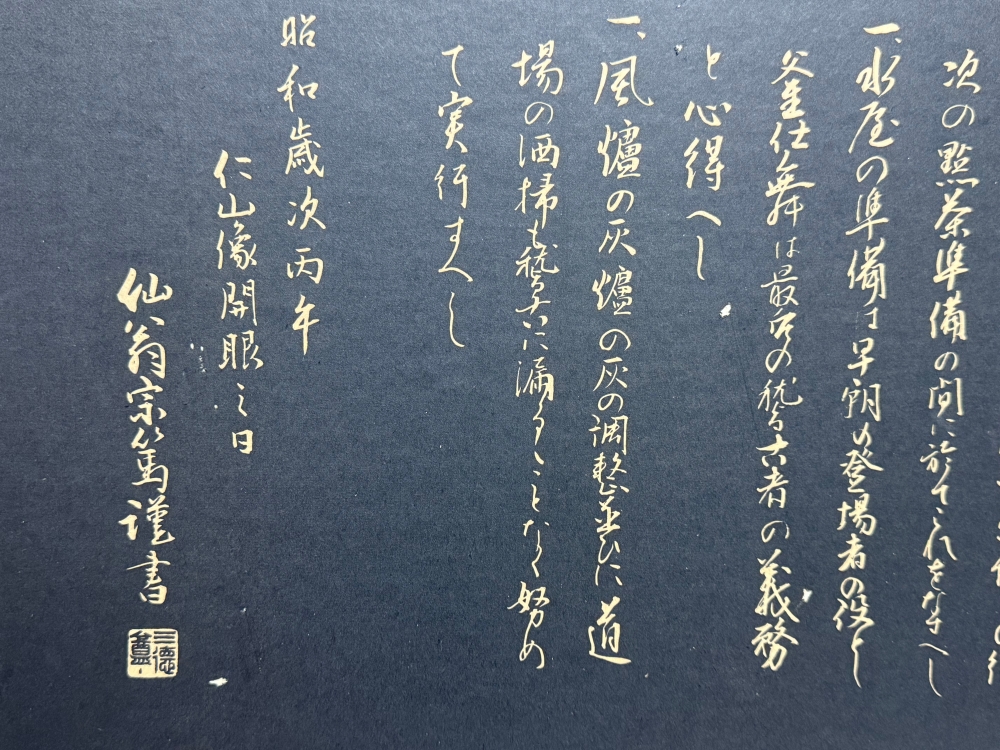 次の點茶準備の間に於てこれをなすへし
一、水屋の準備は早朝の登場者の役とし
釜仕舞は最后の稽古者の義務
と心得へし
一、風爐の灰爐の灰の調整並ひに道
場の洒掃も稽古に漏るゝことなく努め
て実行すへし
昭和歳次丙午
仁山像開眼之日
仙翁宗篤謹書
三徳